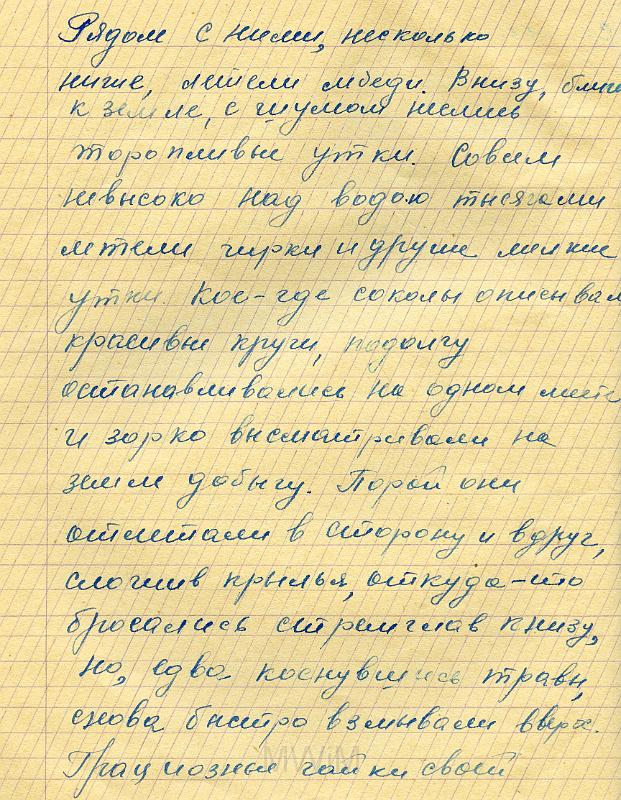 Рядом с ними, несколько
ниже, летели лебеди. Внизу, ближе
к земле, с шумом неслись
торопливые утки. Совсем
невысоко над водою тысячами
летели чирки и другие мелкие
утки. Кое-где соколы описывали
красивые круги, подолгу
останавливались на одном месте
и зорко высматривали на
земле добычу. Порой они
отлетали в сторону и вдруг,
сложив крылья, откуда-то
бросались стремглав книзу,
но, едва коснувшись травы,
снова быстро взмывали вверх.
Грациозные чайки своей
MWiM